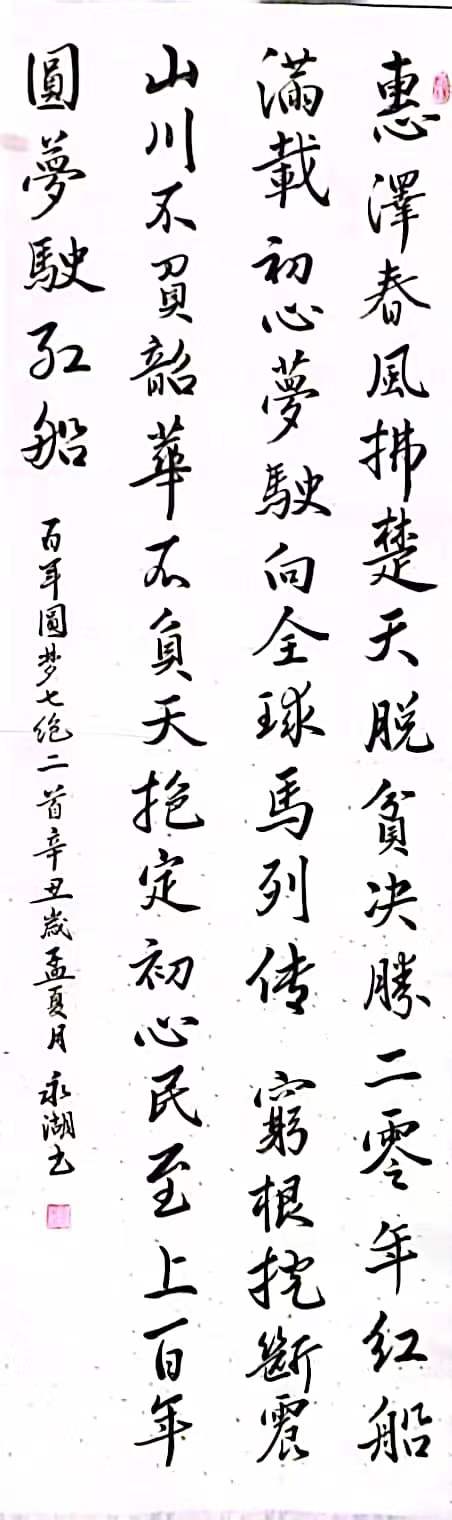 惠澤春風拂楚天脱貧决勝二零年红船
滿載初心夢駛向全球馬列传 窮根挖斷震
山川不買韶華不負天抱定初心民至上百年
圓夢駛红船
百年圓梦七绝二首辛丑歲孟夏月 永湖书